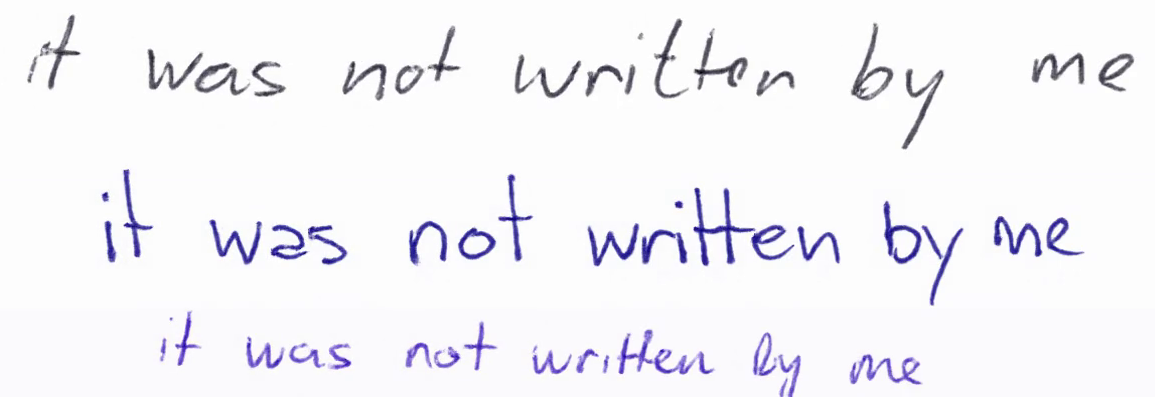 it was not written by me
it was not written by me
it was not written by me